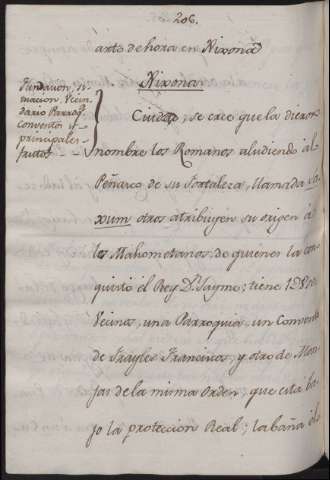 206.
arto de hora en Xixona
Xixona
Fundacion, si-
macion, Vecin-
dario Parroq.
Conventos y
principales
frutos
Ciudad, se cree que la dieron
nombre los Romanos aludiendo al
Peñasco de su fortaleza, llamada Sa-
xum otros atribuyen su origen á
los Mahometanos, de quienes la con
quistó el Rey Dn. Jayme; tiene
Vecinos, una Parroquia, un Convento
de Frayles Franciscos, y otro de Mon
jas de la misma Orden, que esta ba
jo la proteccion Real; la baña el